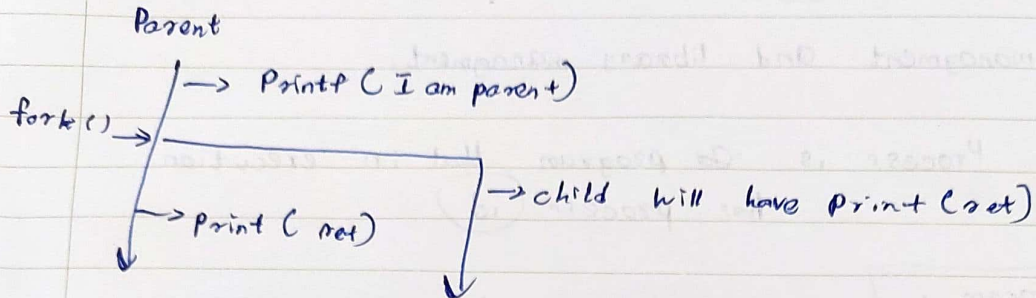 Parent
→ Printf ( I am parent)
fork ()→
→ child will have print (ret)
→ print ( ret)